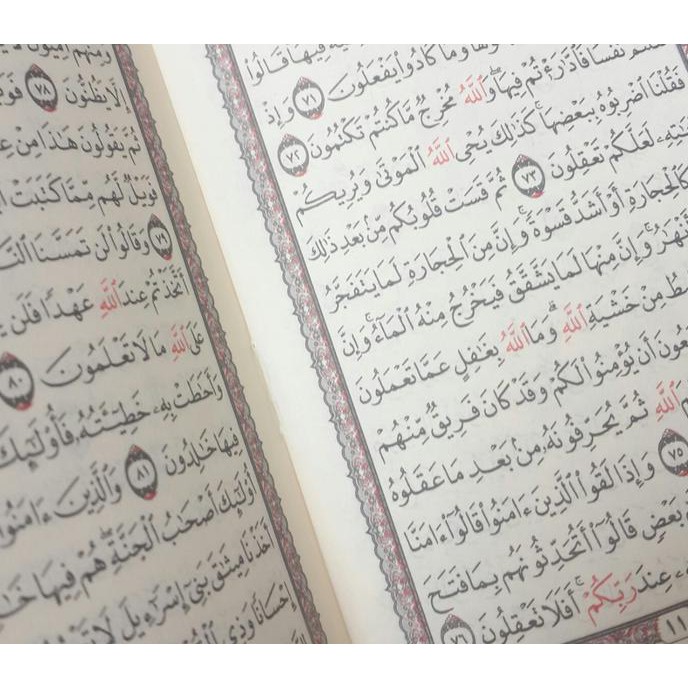 فِيهَا قَالُوا
وَمَا كَادُوا يَفْعَلُونَ ٧١ وَإِذْ
نَفْسًا فَادَّارَأْتُمْ فِيهَا وَاللَّهُ مُخْرِجٌ مَّا كُنتُمْ تَكْتُمُونَ ٧٢
فَقُلْنَا اضْرِبُوهُ بِبَعْضِهَا كَذَلِكَ يُحْيِ اللَّهُ الْمَوْتَى وَيُرِيكُمْ
لَعَلَّكُمْ تَعْقِلُونَ ٧٣ ثُمَّ قَسَتْ قُلُوبُكُم مِّن بَعْدِ ذَلِكَ
كَالْحِجَارَةِ أَوْ أَشَدُّ قَسْوَةً وَإِنَّ مِنَ الْحِجَارَةِ لَمَا يَتَفَجَّرُ
وَإِنَّ مِنْهَا لَمَا يَشَّقَّقُ فَيَخْرُجُ مِنْهُ الْمَاءُ وَإِنَّ
مِنْ خَشْيَةِ اللَّهِ وَمَا اللَّهُ بِغَافِلٍ عَمَّا تَعْمَلُونَ
أَن يُؤْمِنُوا لَكُمْ وَقَدْ كَانَ فَرِيقٌ مِّنْهُمْ
اللَّهِ ثُمَّ يُحَرِّفُونَهُ مِن بَعْدِ مَا عَقَلُوهُ
٧٥ وَإِذَا لَقُوا الَّذِينَ ءَامَنُوا قَالُوا ءَامَنَّا
بَعْضٍ قَالُوا أَتُحَدِّثُونَهُم بِمَا فَتَحَ
عِندَ رَبِّكُمْ أَفَلَا تَعْقِلُونَ ٧٦
١١
إِلَّا يَظُنُّونَ ٧٨
ثُمَّ يَقُولُونَ هَذَا مِنْ
فَوَيْلٌ لَّهُم مِّمَّا كَتَبَتْ
٧٩ وَقَالُوا لَن تَمَسَّنَا
أَتَّخَذْتُمْ عِندَ اللَّهِ عَهْدًا فَلَن
عَلَى اللَّهِ مَا لَا تَعْلَمُونَ ٨٠
وَأَحَاطَتْ بِهِ خَطِيئَتُهُ فَأُولَئِكَ
فِيهَا خَالِدُونَ ٨١ وَالَّذِينَ ءَامَنُوا
أُولَئِكَ أَصْحَابُ الْجَنَّةِ هُمْ فِيهَا
أَخَذْنَا مِيثَاقَ بَنِي إِسْرَاءِيلَ لَا
إِحْسَانًا وَذِي